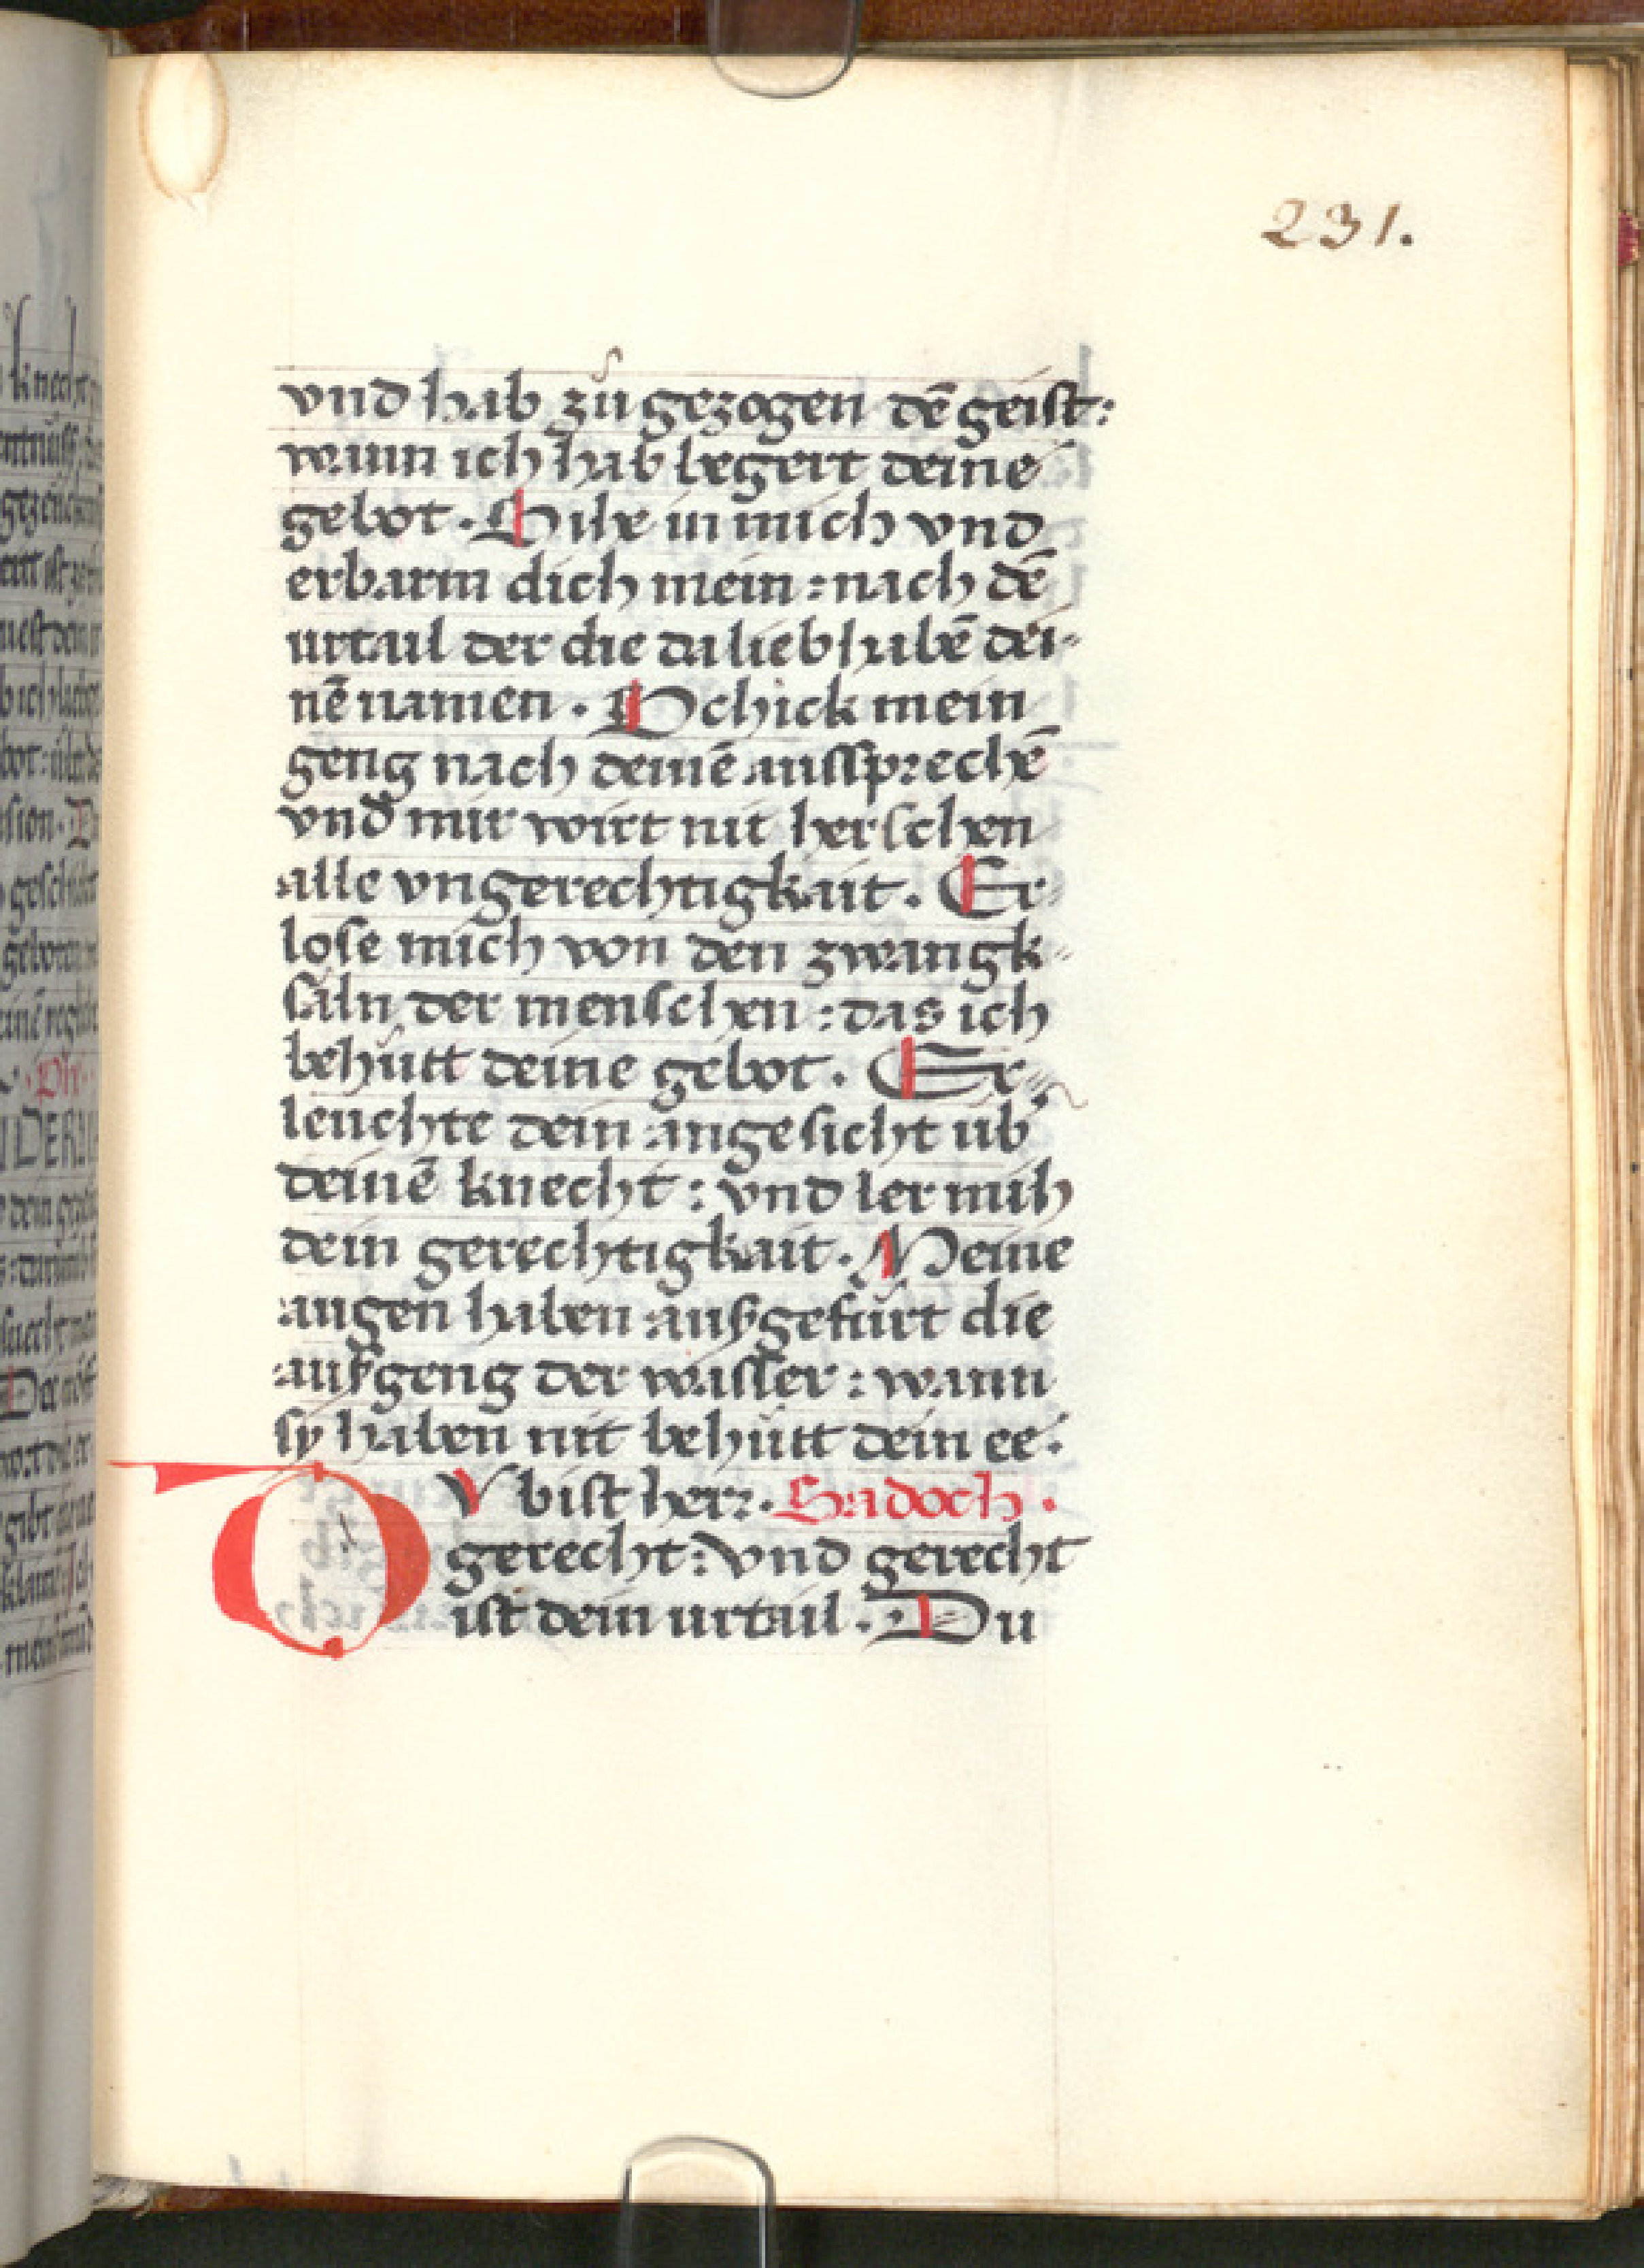 231.
vnd hab zu gezogen dē geist:
wann ich hab begert deine
gebot. Sihe in mich vnd
erbarm dich mein: nach dē
urtail der die da lieb habē dei-
nē namen. Schick mein
geng nach deinē aussprechē
vnd mir wirt nit herschen
alle vngerechtigkait. Er-
lose mich von den zwangk-
saln der menschen: das ich
behütt deine gebot. Er-
leuchte dein angesicht üb
deinē knecht: vnd ler mih
dein gerechtigkait. Meine
augen haben außgefürt die
außgeng der wasser: wann
sy haben nit behütt dein ee.
DV bist herr. Sadoch.
gerecht: vnd gerecht
ist dein urtail. Du